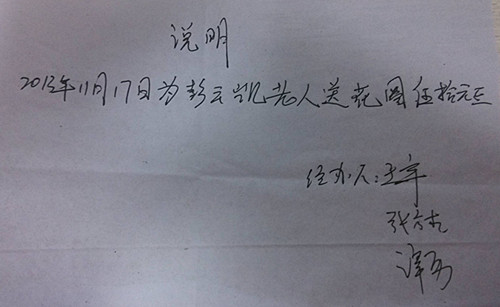 说明
2013年11月17日为彭云凯老人送花圈伍拾元正
经办人:王宇
张